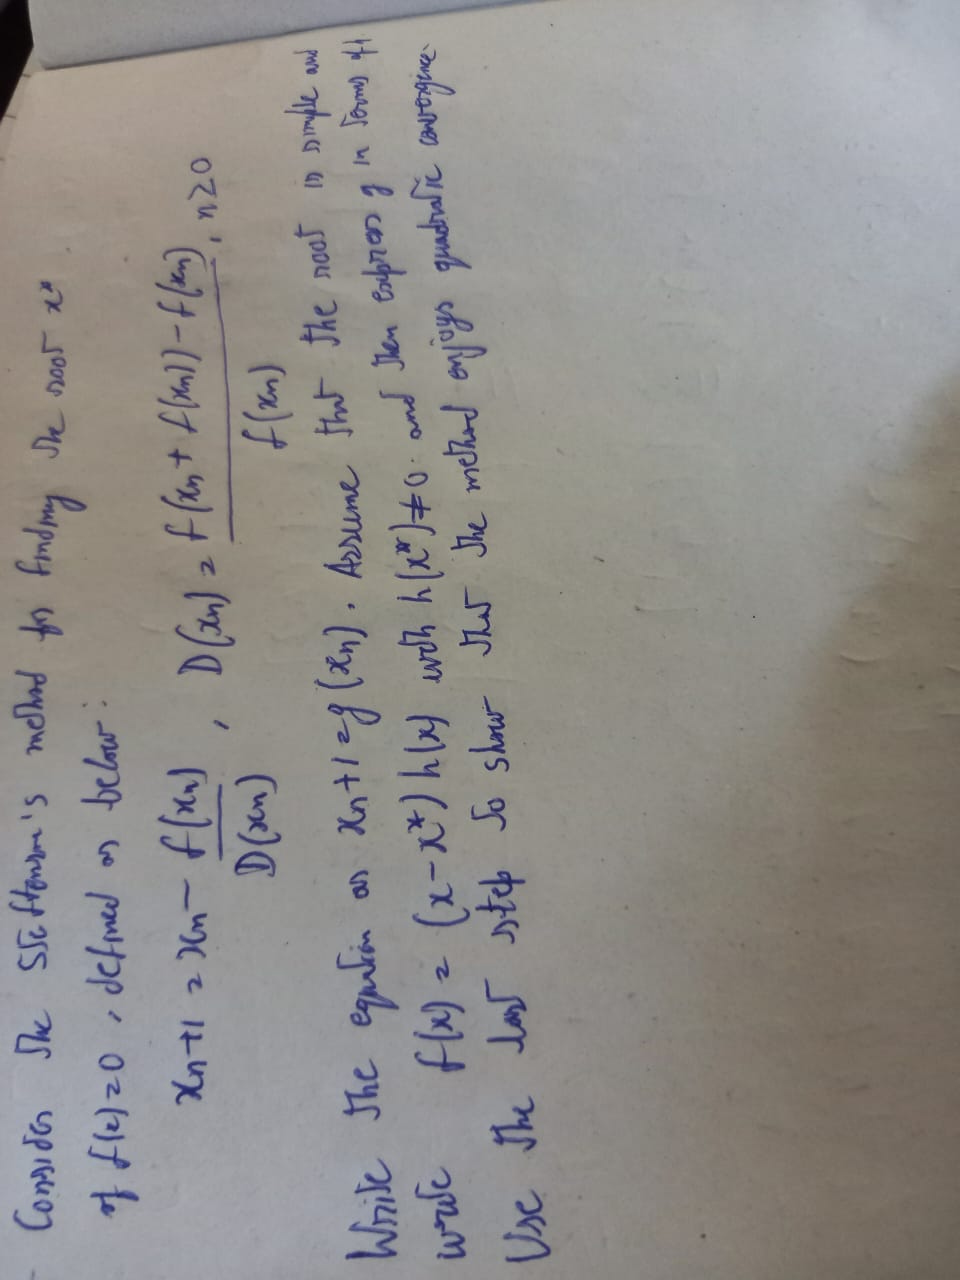 Consider the Steffenson's method for finding the root x*
of f(x)=0, defined as below:
xn+1 = xn - f(xn)/D(xn), D(xn) = f(xn + f(xn)) - f(xn)/f(xn), n≥0
Write the equation as xn+1=g(xn). Assume that the root is simple and
write f(x) = (x-x*) h(x) with h(x*)≠0. and then express g in terms of h
Use the last step to show that the method enjoys quadratic convergence.